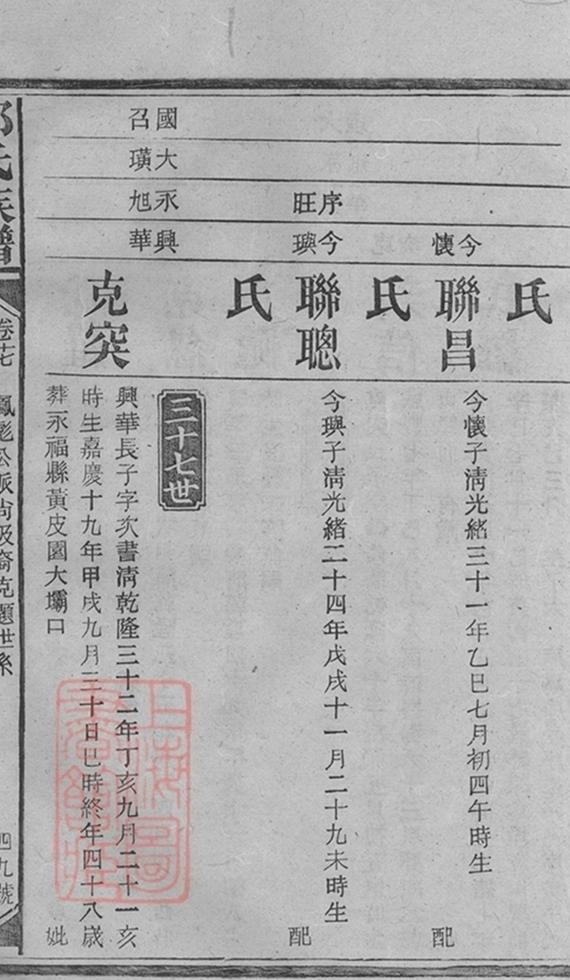 氏
今懷
聯昌
今懷子清光緒三十一年乙巳七月初四午時生
配
氏
序旺
今璵
聯聰
今璵子清光緒二十四年戊戌十一月二十九未時生
配
氏
三十七世
國召
大璜
永旭
興華
克突
興華長子字次書清乾隆三十二年丁亥九月二十一亥
時生嘉慶十九年甲戌九月三十日巳時終年四十八歲
葬永福縣黃皮園大壩口
妣
氏族譜
卷十七
公派尚汲裔克題世系
四九號